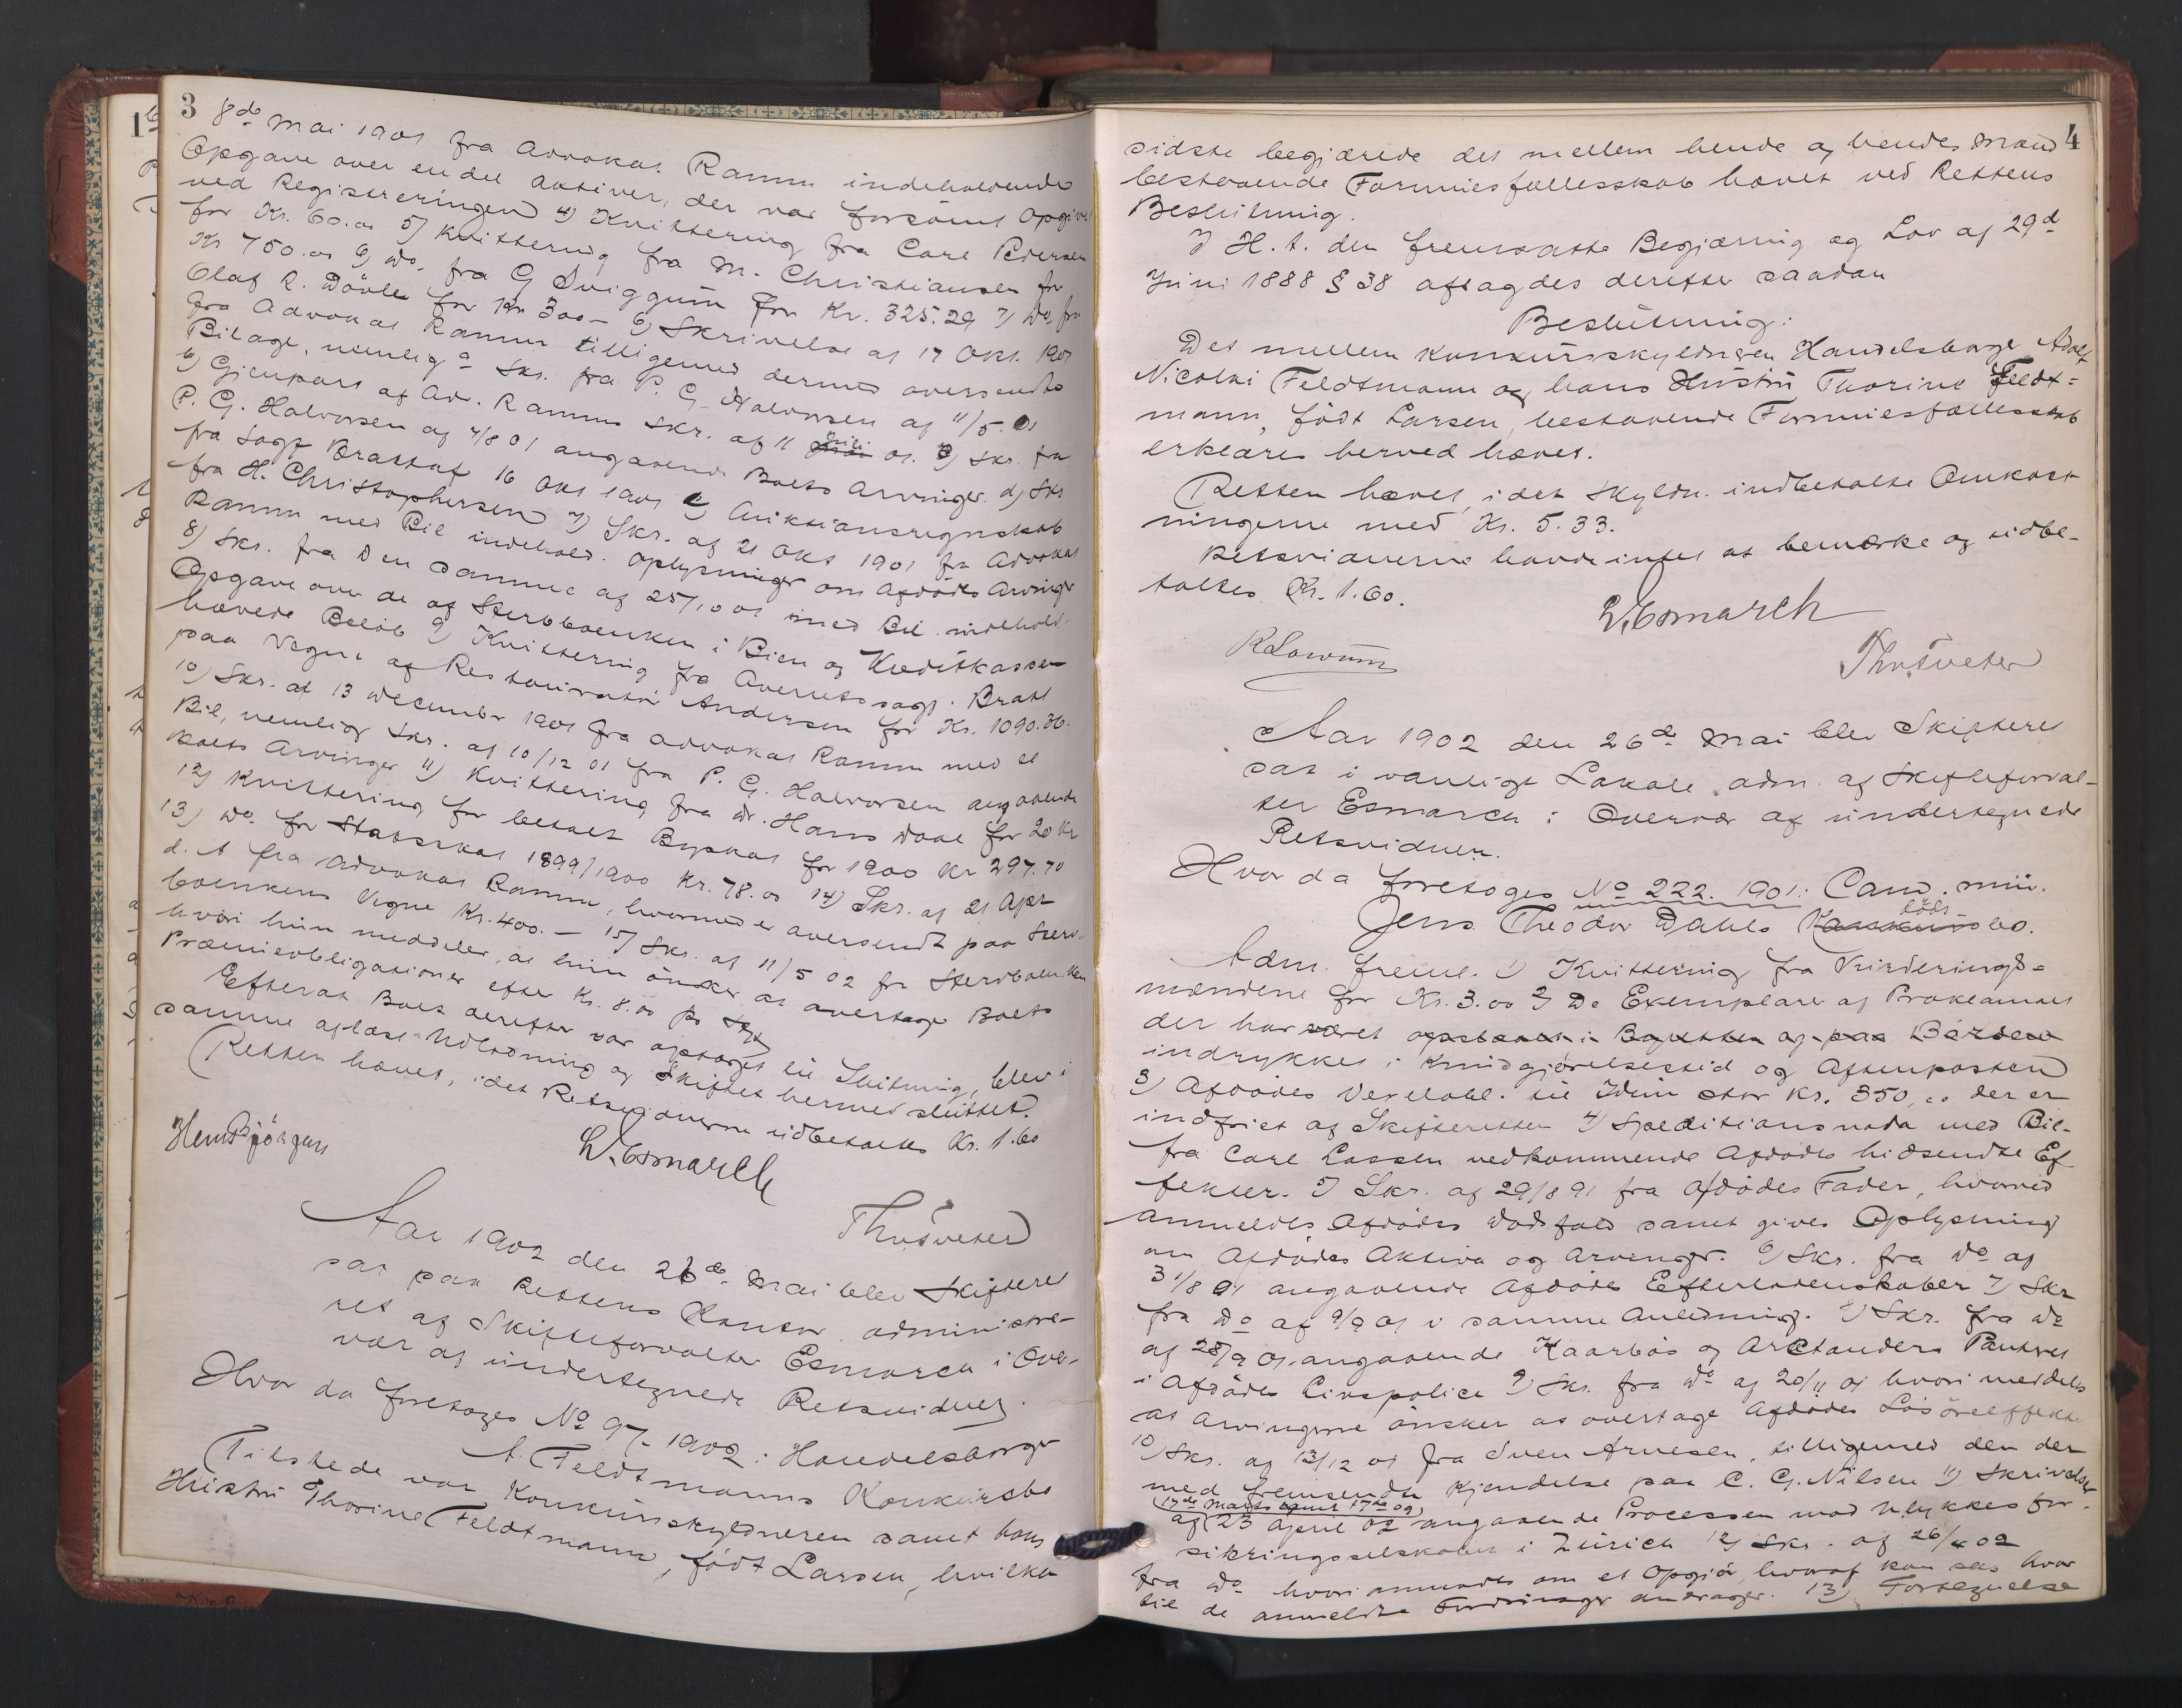 3
8de Mai 1901 fra Advokat Ramm indeholdende
Opgave over endel Aktiver, der var forsömt opgivet
ved Registreringen 4) Kvittering fra Carl Pedersen
for Kr. 60.00 5) Kvittering fra M. Christiansen for
Kr 750.00 6) Do. fra G Sviggum for Kr. 325.29 7) Do. fra
Olaf R. Dövle for Kr 300 – 6) Skrivelse af 17 Okt. 1901
fra Advokat Ramm tilligemed dermed oversendte
Bilage, nemlig a Skr. fra P. G. Halvorsen af 11/5 01
b) Gjenpart af Adv. Ramms Skr. af 11 Juli 01. c) Skr. fra
P. G. Halvorsen af 7/8 01 angaaende Boets Arvinger. d) Skr
fra Sagf Brastad 16 Okt 1901 e) Auktionsregnskab
fra H. Christophersen 7) Skr. af 21 Okt 1901 fra Advokat
Ramm med Bil indehold. Oplysninger om Afdødes Arvinger
8) Skr. fra Den samme af 25/10 01 med Bil. indehold.
Opgave over de af Sterbboenken i Bien og Kreditkassen
hævede Beløb 9) Kvittering fra Overretssagf. Brahl
paa Vegne af Restauratør Andersen for Kr. 1090.36.
10) Skr. af 13 December 1901 fra Advokat Ramm med et
Bil, nemlig Skr. af 10/12 01 fra P. G. Halvorsen angaaende
Boets Arvinger 11) Kvittering fra Dr. Hans Daae for 20 Kr
12) Kvittering for betalt Byskat for 1900 Kr 297.70
13) Do for Statsskat 1899/1900 Kr. 78.00 14) Skr. af 21 Apr
d. A fra Advokat Ramm, hvormed er oversendt paa Sterv-
boenkens Vegne Kr. 400. – 15) Skr. af 11/5 02 fra Stervboenken
hvori hun meddeler, at hun önsker at overtage Boets
Præmieobligationer efter Kr. 8.00 pr Stk
Efterat Boet derefter var optaget til Slutning, blev i
samme aflæst Udlodning og Skiftet hermed sluttet.
Retten hævet, idet Retsvidnerne udbetaltes Kr. 1.60
L. Esmarch
Hem Björgen
Thv. Tveter
Aar 1902 den 26de Mai blev Skifteret
sat paa Rettens Kontor administre-
ret af Skifteforvalter Esmarch i Over-
vær af undertegnede Retsvidner.
Hvor da foretoges No 97 – 1902: Handelsborger
A. Feldtmanns Konkursbo
Tilstede var Konkursskyldneren samt hans
Hustru Thorine Feldtmann, født Larsen, hvilken
4
sidste begjærede det mellem hende og hendes Mand
bestaaende Formuesfællesskab hævet ved Rettens
Beslutning.
I H. t. den fremsatte Begjæring og Lov af 29d
Juni 1888 § 38 afsagdes derefter saadan
Beslutning:
Det mellem Konkursskyldneren Handelsborger Adolf
Nicolai Feldtmann og hans Hustru Thorine Feldt=
mann, født Larsen, bestaaende Formuesfællesskab
erklæres herved hævet.
Retten hævet, idet Skyldn. indbetalte Omkost
ningerne med Kr. 5.33.
Retsvidnerne havde intet at bemærke og udbe-
taltes Kr. 1.60.
L. Esmarch
Thv. Tveter
Aar 1902 den 26de Mai blev Skifteret
sat i vanligt Lokale adm. af Skifteforval-
ter Esmarch i Overvær af undertegnede
Retsvidner.
Hvor da foretoges No 222. 1901: Cand. min.
Jens Theodor Dahls Konkurs döds bo.
Adm. freml. 1) Kvittering fra Vurderings=
mændene for Kr. 3.00 2) De Exemplarer af Proklamaet
der har været opslaaet i Byretten og paa Börsen
indrykket i Kundgjörelsestid og Aftenposten
3) Afdødes Vexelobl. til Idun stor Kr. 350,00 der er
indfriet af Skifteretten 4) Speditionsnota med Bil.
fra Carl Lassen vedkommende Afdødes hidsendte Ef
fekter. 5) Skr. af 29/8 91 fra Afdødes Fader, hvorved
anmeldes Afdødes Dødsfald samt gives Oplysning
om Afdødes Aktiva og Arvinger. 6) Skr. fra Do af
31/8 01 angaaende Afdødes Efterladenskaber 7) Skr
fra Do af 9/9 01 i samme Anledning. 8) Skr. fra Do
af 28/9 01. angaaende Kaarbös og Arctanders Pantret
i Afdødes Livspolice 9) Skr. fra Do af 20/11 01 hvori meddeles
at Arvingerne önsker at overtage Afdødes Lösöreeffekter
10) Skr. af 13/12 01 fra Sven Arnesen, tilligemed den der
med fremsendte Kjendelse paa C. G. Nilsen 11) Skrivelser
17de Marts samt 17de og
af 23 April 02 angaaende Processen mod Ulykkesfor-
sikringsselskabet i Zürich 12) Skr. af 26/4 02
fra Do hvori anmodes om et Opgjör, hvoraf kan sees hvor
til de anmeldte Fordringer andrager. 13) Fortegnelse